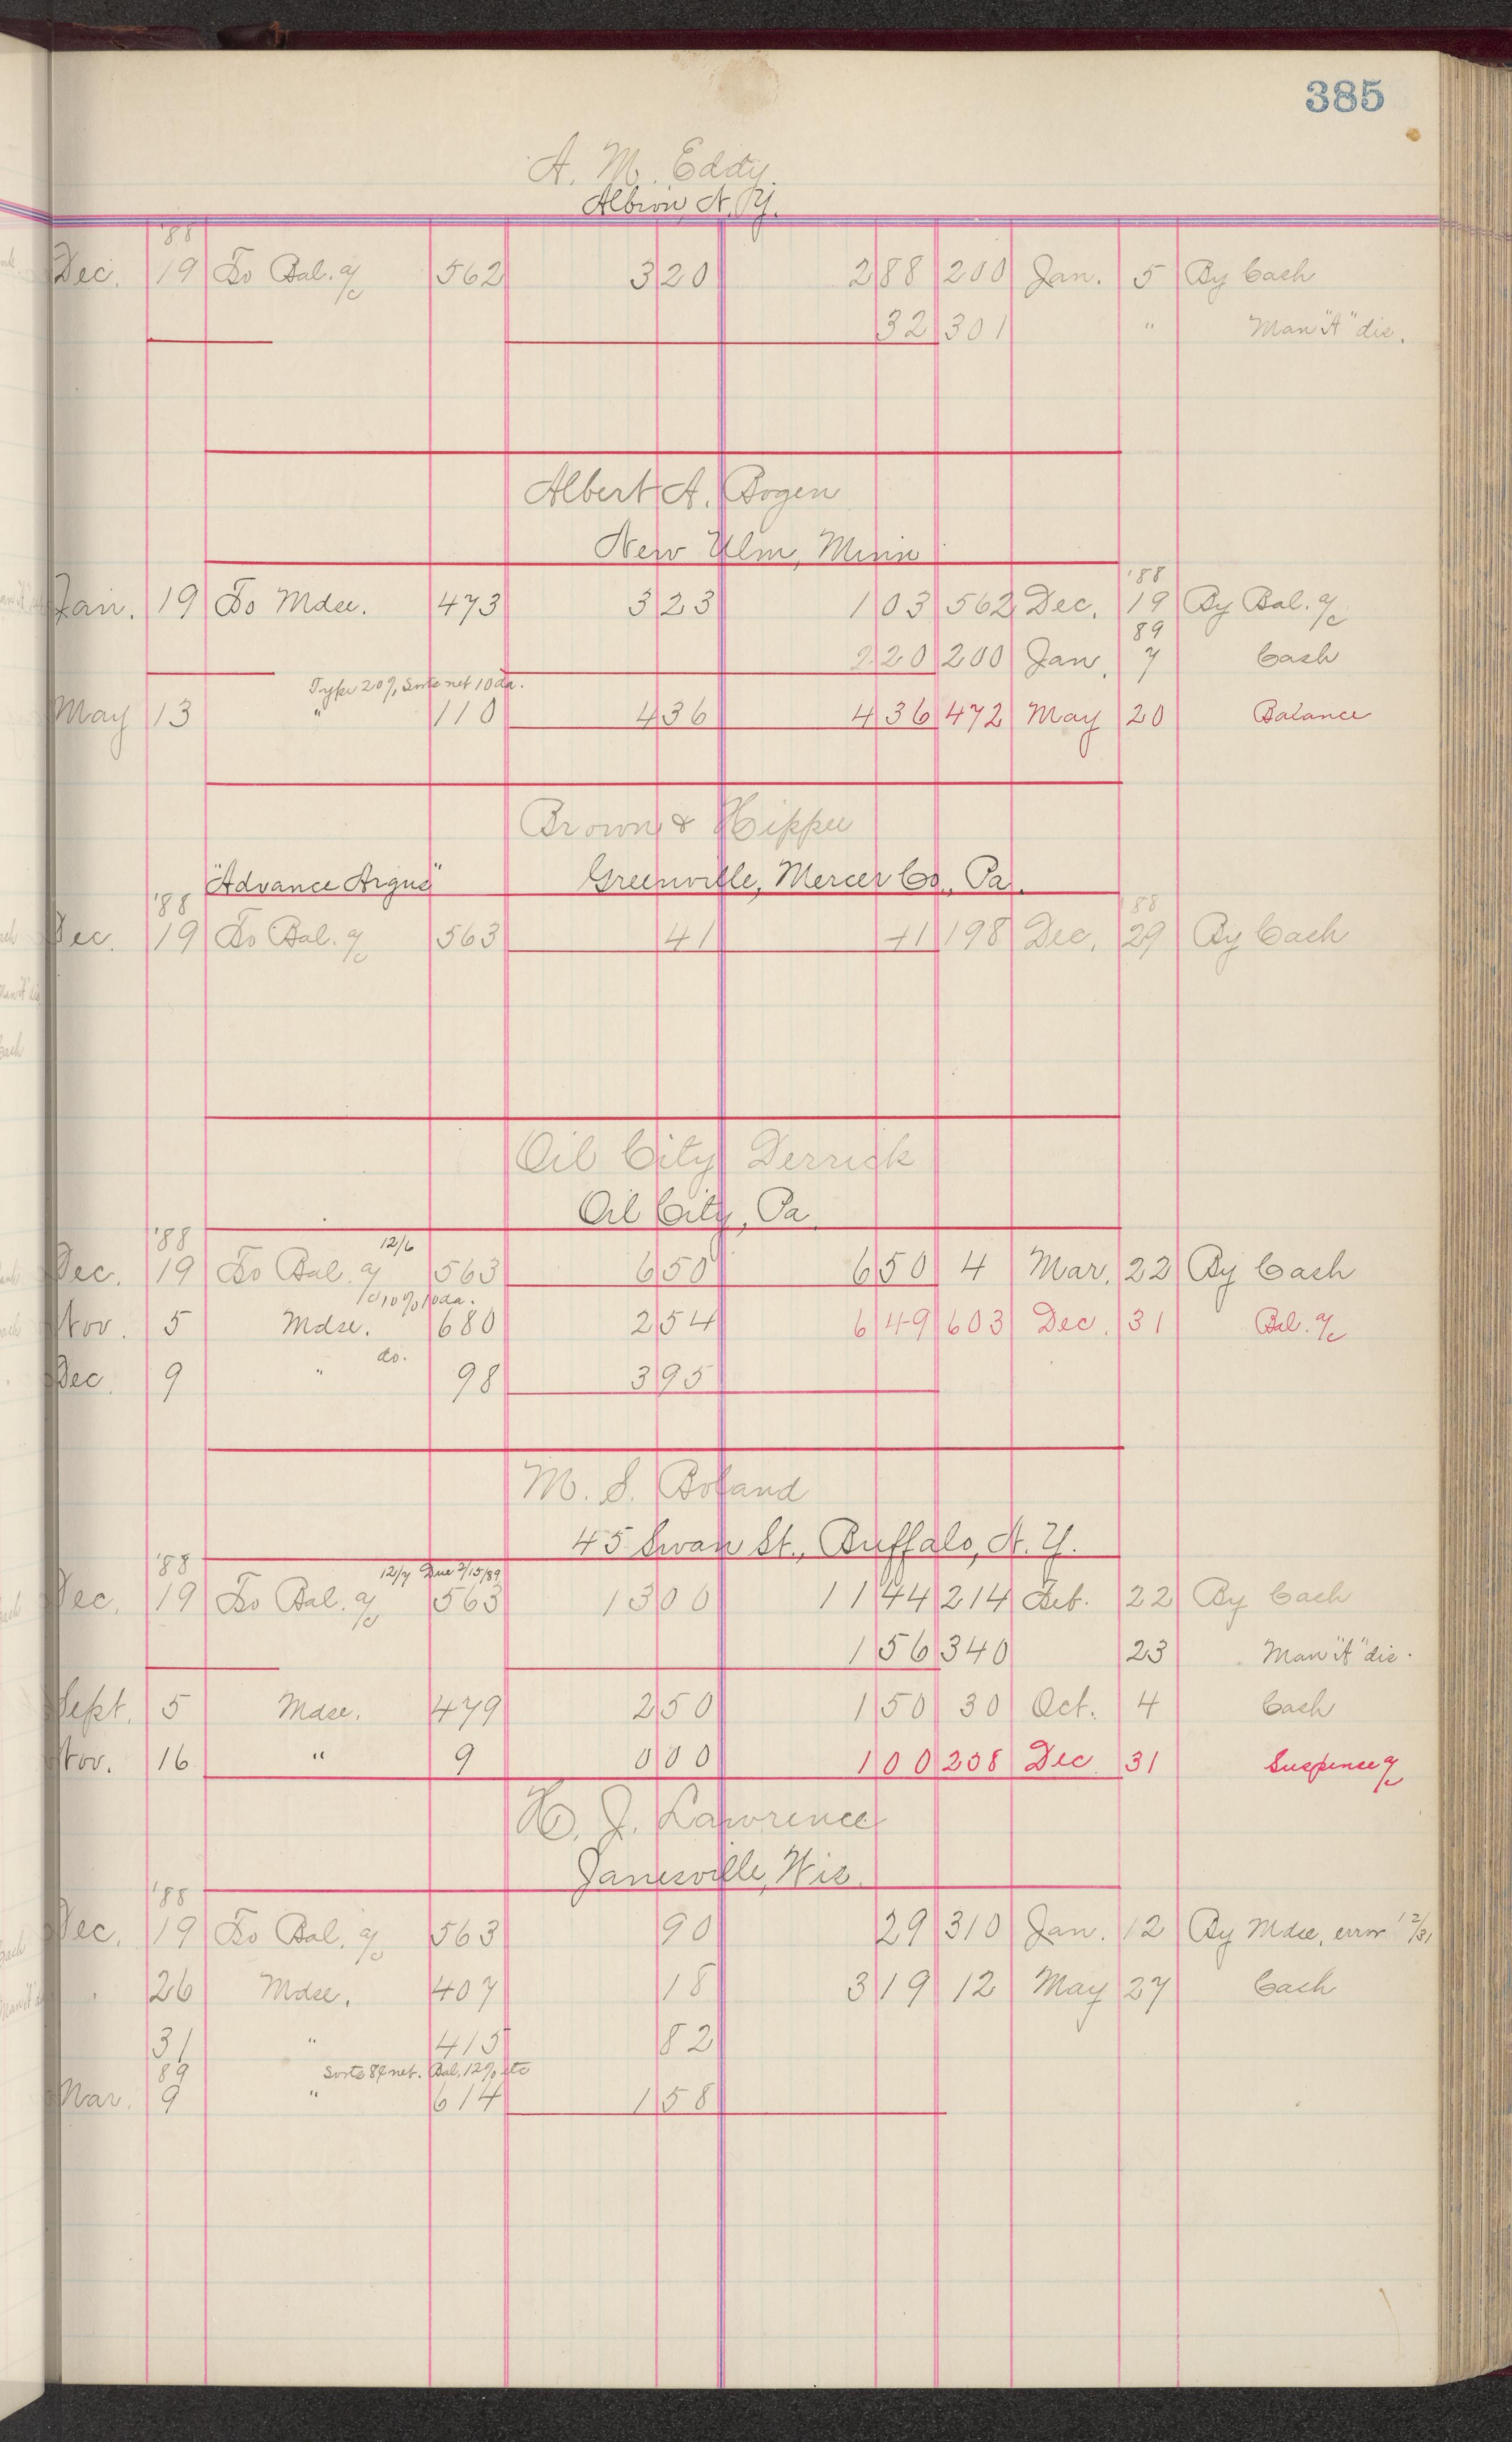 385
A. M. Eddy.
Albion, N. Y.
'88
Dec. 19 To Bal. a/c 562 320 288 200 Jan. 5 By Cash
32 301 " Man "A" dis.
Albert A. Bogen
New Ulm, Minn
'88
Jan. 19 To Mdse. 473 323 103 562 Dec. 19 By Bal. a/c
89
220 200 Jan. 7 Cash
Type 20%, Sorts net 10 da.
May 13 " 110 436 436 472 May 20 Balance
Brown & Hippee
"Advance Argus" Greenville, Mercer Co., Pa.
'88 '88
Dec. 19 To Bal. a/c 563 41 41 198 Dec. 29 By Cash
Oil City Derrick
Oil City, Pa.
'88 12/6
Dec. 19 To Bal. a/c 563 650 650 4 Mar. 22 By Cash
10% 10 da.
Nov. 5 Mdse. 680 254 649 603 Dec. 31 Bal. a/c
do.
Dec. 9 " 98 395
M. S. Boland
45 Swan St., Buffalo, N. Y.
'88 12/7 Due 2/15/89
Dec. 19 To Bal. a/c 563 1300 1144 214 Feb. 22 By Cash
156 340 23 Man "A" dis.
Sept. 5 Mdse. 479 250 150 30 Oct. 4 Cash
Nov. 16 " 9 000 100 208 Dec. 31 Suspense a/c
H. J. Lawrence
Janesville, Wis.
'88
Dec. 19 To Bal. a/c 563 90 29 310 Jan. 12 By Mdse, error 12/31
" 26 Mdse. 407 18 319 12 May 27 Cash
31 " 415 82
89 Sorts 8% net. Bal. 12% etc
Mar. 9 " 614 158